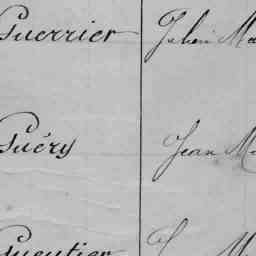 Guerrier Julien Ma
Guéry Jean M
Gueutier